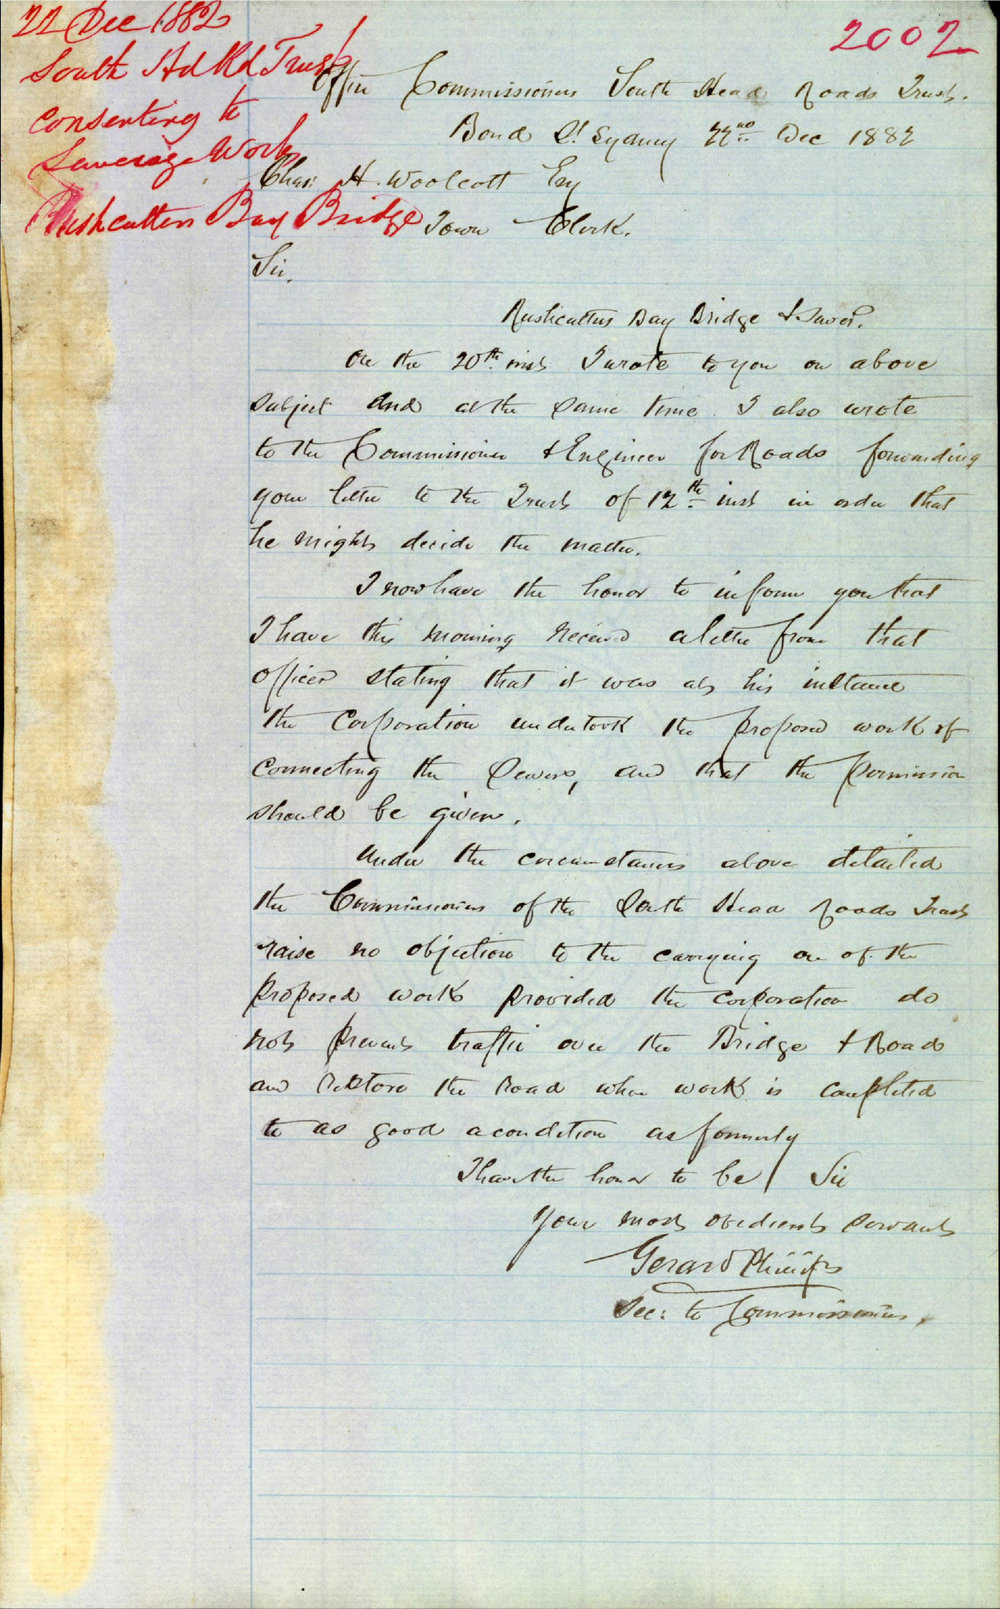 22 Dec 1882
South Hd Rd Trust
consenting to
Sewerage Work
Rushcutters Bay Bridge
2002
Office Commissioners South Head Roads Trust.
Bond St Sydney 22nd Dec 1882
Chas: H. Woolcott Esq
Town Clerk.
Sir,
Rushcutters Bay Bridge & Sewer.
On the 20th inst I wrote to you on above
subject and at the same time I also wrote
to the Commissioner & Engineer for Roads forwarding
your letter to the Trust of 12th inst in order that
he might decide the matter.
I now have the honor to inform you that
I have this morning received a letter from that
officer stating that it was at his instance
the Corporation undertook the proposed work of
connecting the Sewers, and that the permission
should be given.
Under the circumstances above detailed
the Commissioners of the South Head Roads Trust
raise no objection to the carrying on of the
proposed work provided the corporation do
not prevent traffic over the Bridge & Road
and restore the road when work is completed
to as good a condition as formerly
I have the honor to be / Sir
Your most obedient servant
Gerard Phillips
Sec: to Commissioners.